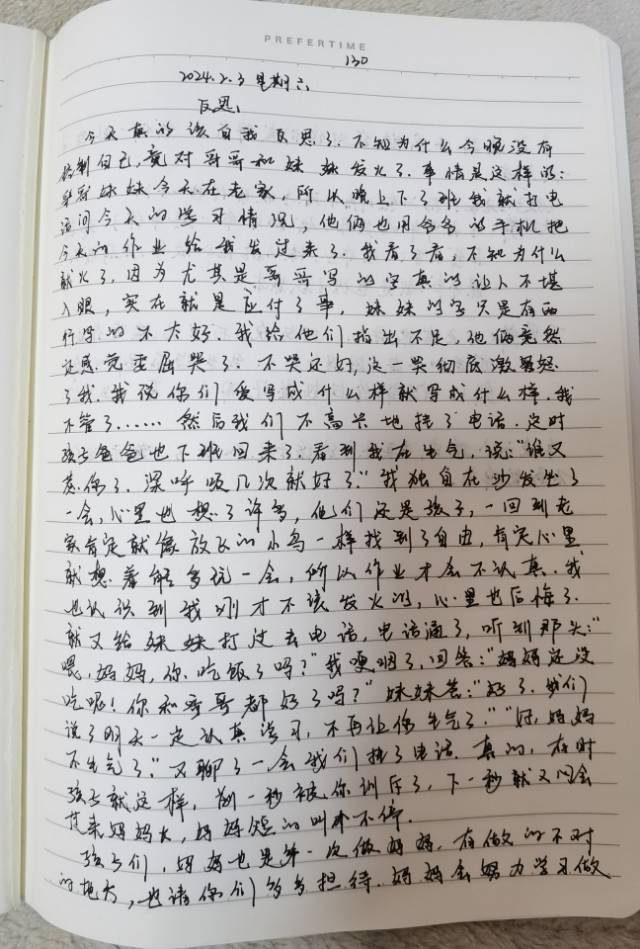 PREFERTIME
130
2024.2.3 星期六
反思
今天真的该自我反思了.不知为什么今晚没有
控制自己,竟对哥哥和妹妹发火了.事情是这样的:
哥哥妹妹今天在老家,所以晚上下了班我就打电
话问今天的学习情况,他俩也用爷爷的手机把
今天的作业给我发过来了.我看了看,不知为什么
就火了,因为尤其是哥哥写的字真的让人不堪
入眼,实在就是应付了事,妹妹的字只是有两
行写的不太好.我给他们指出不足,他俩竟然
还感觉委屈哭了.不哭还好,这一哭彻底激怒
了我.我说你们爱写成什么样就写成什么样.我
不管了……然后我们不高兴地挂了电话.这时
孩子爸爸也下班回来了.看到我在生气,说:"谁又
惹你了.深呼吸几次就好了."我独自在沙发坐了
一会,心里也想了许多,他们还是孩子,一回到老
家肯定就像放飞的小鸟一样找到了自由,肯定心里
就想着能多玩一会,所以作业才会不认真.我
也认识到我刚才不该发火的,心里也后悔了.
就又给妹妹打过去电话,电话通了,听到那头:"
喂,妈妈,你吃饭了吗?"我哽咽了,回答:"妈妈还没
吃呢!你和哥哥都好了吗?"妹妹答:"好了.我们
说了明天一定认真学习,不再让你生气了.""好,妈妈
不生气了."又聊了一会我们挂了电话.真的,有时
孩子就这样,前一秒被你训斥了,下一秒就又回会
妈妈长,妈妈短的叫个不停.
孩子们,妈妈也是第一次做妈妈,有做的不对
的地方,也请你们多多担待.妈妈会努力学习做